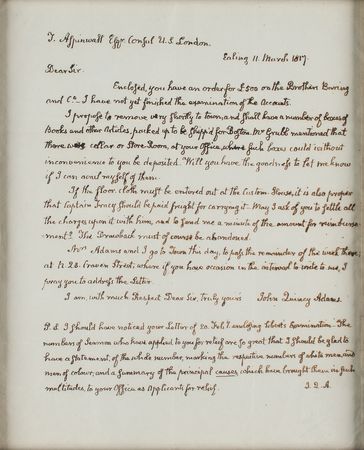 T. Aspinwall Esqr. Consul U.S London.
Ealing 11. March 1817.
Dear Sir.
Enclosed, you have an order for £500 on the Brothers Baring
and Co. I have not yet finished the examination of the Accounts.
I propose to remove very shortly to town, and shall have a number of boxes of
Books and other Articles, packed up to be shipp'd for Boston. Mr Grubb mentioned that
there was cellar or Store Room, at your Office, where such boxes could without
inconvenience to you be deposited. Will you have the goodness to let me know
if I can avail myself of them.
If the floor cloth must be entered out at the Custom House, it is also proper
that Captain Tracy should be paid freight for carrying it. May I ask of you to settle all
the charge upon it with him, and to send me a minute of the amount for reimburse-
ment? The Drawback must of course be abandoned.
Mrs. Adams and I go to Town this day, to pass the remainder of the week there,
at N. 28. Craven Street; where if you have occasion in the interval to write to me, I
pray you to address the Letter.
I am, with much Respect Dear Sir, truly yours John Quincy Adams.
P.S. I should have noticed your Letter of 20. Feby. enclosing Examination. The
numbers of Seamen who have applied to you for relief are so great that I should be glad to
have a statement, of the whole number, marking the respective numbers of white men and
men of colour; and a summary of the principal causes which have brought them in such
multitudes to your Office as Applicants for relief. J.Q.A.